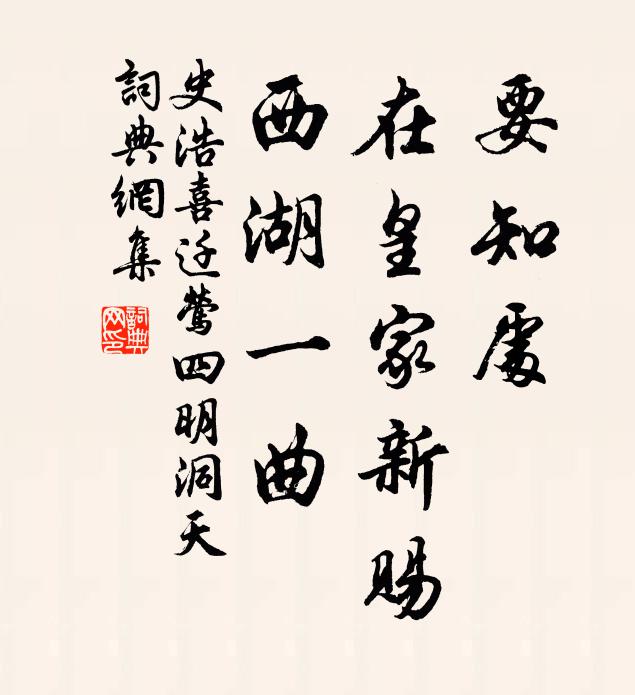 要知處
在皇家新賜
西湖一曲
史浩喜迁鶯四明洞天
詞典網集
詞典
网印